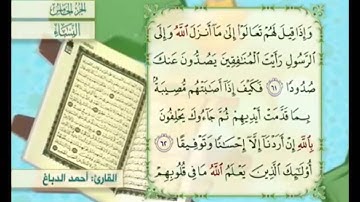 الجزء الخامس
النساء
وَإِذَا قِيلَ لَهُمْ تَعَالَوْا۟ إِلَىٰ مَآ أَنزَلَ ٱللَّهُ وَإِلَى
ٱلرَّسُولِ رَأَيْتَ ٱلْمُنَـٰفِقِينَ يَصُدُّونَ عَنكَ
صُدُودًا ٦١ فَكَيْفَ إِذَآ أَصَـٰبَتْهُم مُّصِيبَةٌۢ
بِمَا قَدَّمَتْ أَيْدِيهِمْ ثُمَّ جَآءُوكَ يَحْلِفُونَ
بِٱللَّهِ إِنْ أَرَدْنَآ إِلَّآ إِحْسَـٰنًا وَتَوْفِيقًا ٦٢
أُو۟لَـٰٓئِكَ ٱلَّذِينَ يَعْلَمُ ٱللَّهُ مَا فِى قُلُوبِهِمْ
القارئ: أحمد الدباغ